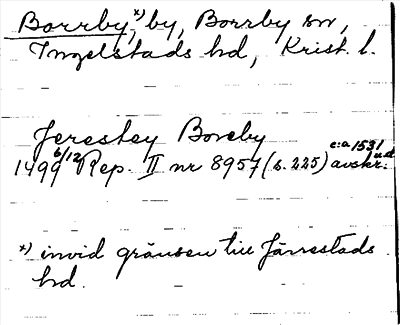 Borrby,*) by, Borrby sn,
Ingelstads hd, Krist. l.
Jerestey Boreby
1499 6/12 Rep. II nr 8957 (s. 225) c:a 1531 avskr. u.d.
*) invid gränsen till Järrestads
hd.